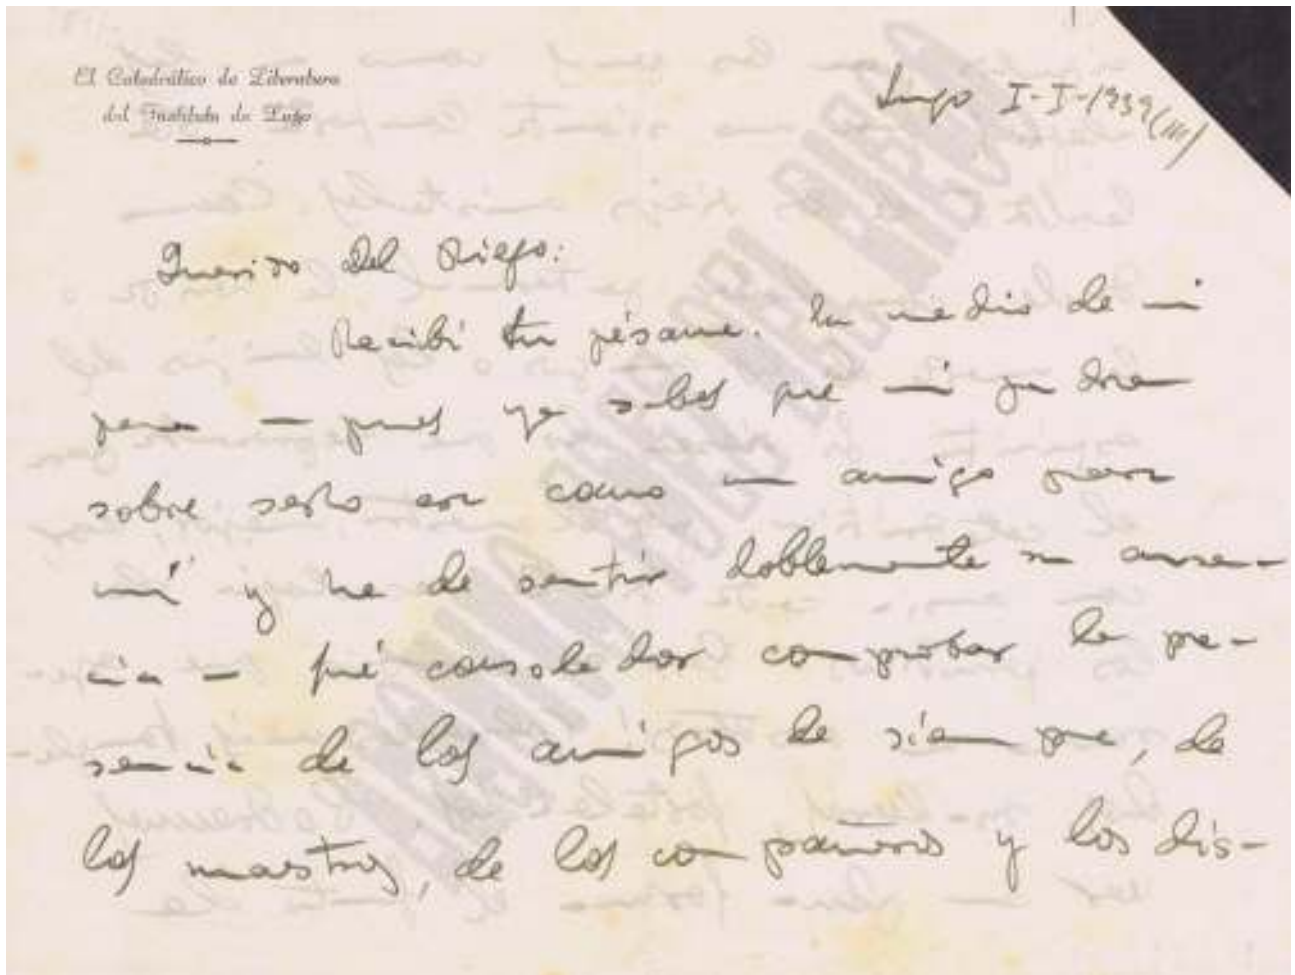 El Catedrático de Literatura
del Instituto de Lugo
Lugo I-I-1939 (III)
Querido Del Riego:
Recibí tu pésame. En medio de mi
pena – pues ya sabes que mi padre
sobre serlo era como un amigo para
mí y he de sentir doblemente su ausen-
cia – qué consolador comprobar la pre-
sencia de los amigos de siempre, de
los maestros, de los compañeros y los dis-